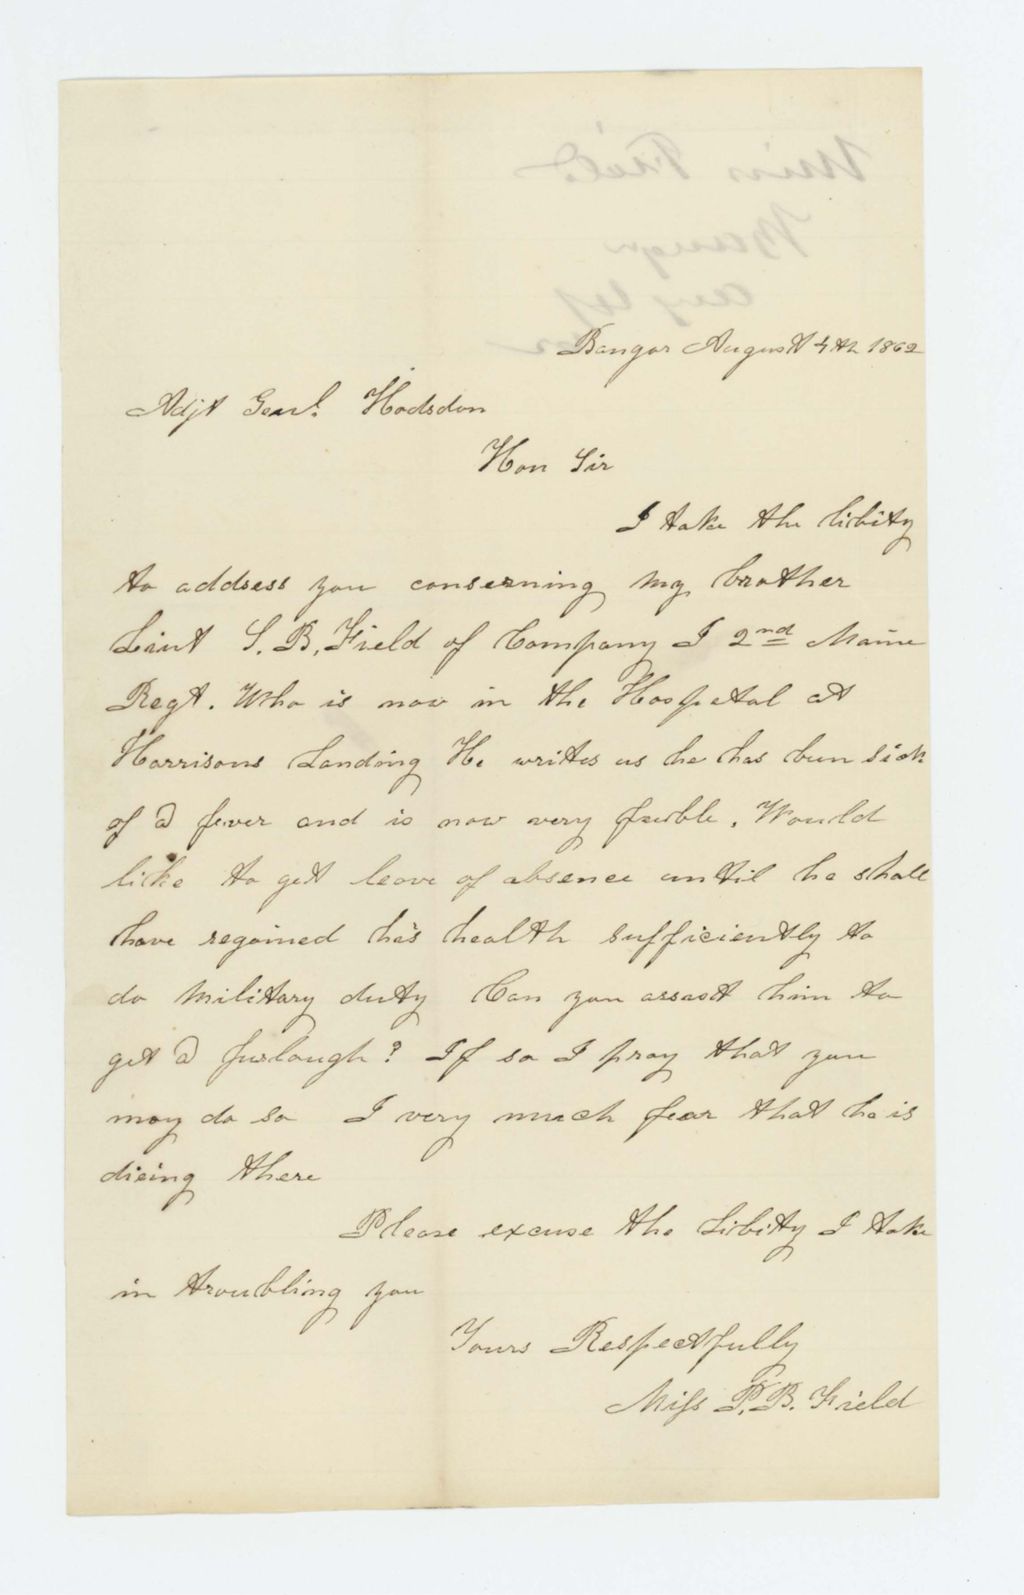 Bangor August 4th 1862
Adjt Genl. Hodsdon
Hon Sir
I take the libity
to address you conserning my brother
Leiut S. B. Field of Company I 2nd Maine
Regt. Who is now in the Hospetal at
Harrisons Landing He writes us he has bun sick
of a fever and is now very feeble. Would
like to get leave of absence until he shall
have regained his health sufficiently to
do military duty Can you assast him to
get a furlough? If so I pray that you
may do so I very much fear that he is
dieing there
Please excuse the Libity I take
in troubling you
Yours Respectfully
Miss P. B. Field